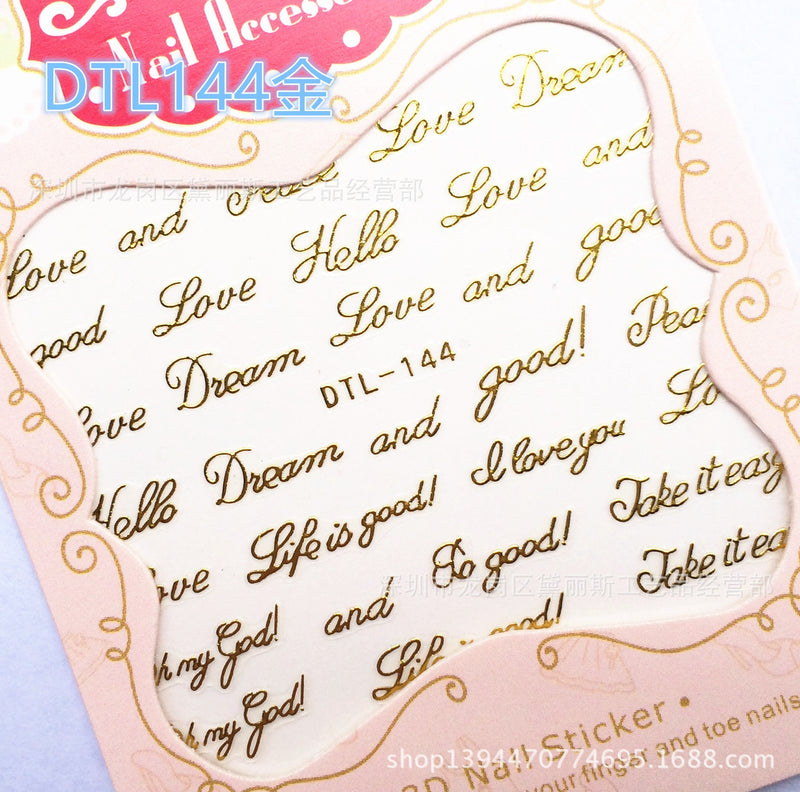 Nail Accesso
DTL144金
Love Dream
Love and Peace
深圳市龙岗区黛丽斯工艺品经营部
Hello Love and
good Love
Love and good
Love Dream
DTL-144
good! Peac
Hello Dream and
I love you Lo
Love Life is good!
Take it easy
and So good!
深圳市龙岗区黛丽斯工艺品经营部
Oh my God!
Take it ea
Life is good!
Oh my God!
3D Nail Sticker
your finger and toe nails
shop1394470774695.1688.com